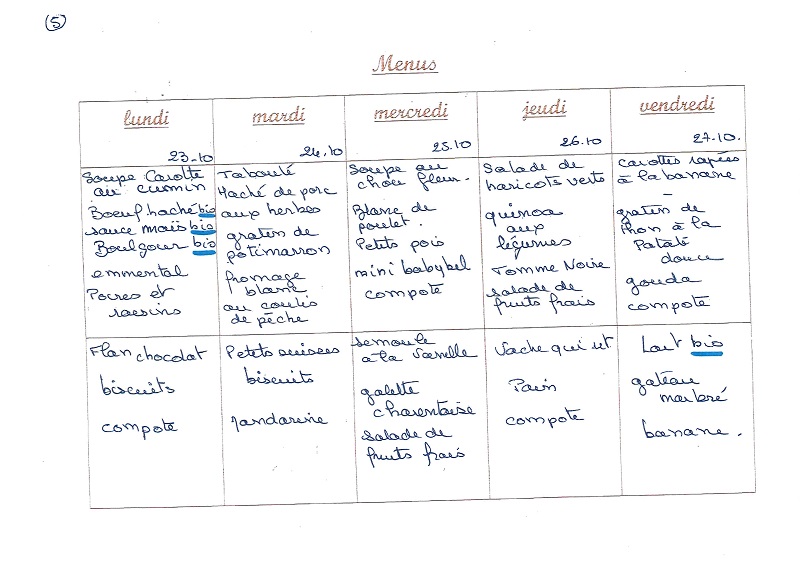 5
Menus
lundi
23.10
Soupe Carotte
au cumin
Boeuf haché bio
sauce maïs bio
Boulgour bio
emmental
Poires et
raisins
Flan chocolat
biscuits
compote
mardi
24.10
Taboulé
Haché de porc
aux herbes
gratin de
potimarron
fromage
blanc
au coulis
de pêche
Petits suisses
biscuits
mandarine
mercredi
25.10
Soupe au
chou fleur.
Blanc de
poulet.
Petits pois
mini babybel
compote
semoule
à la vanille
galette
charentaise
salade de
fruits frais
jeudi
26.10
Salade de
haricots verts
quinoa
aux
légumes
Tomme Noire
salade de
fruits frais
Vache qui rit
Pain
compote
vendredi
27.10.
carottes rapées
à la banane
-
gratin de
thon à la
Patate
douce
gouda
compote
Lait bio
gateau
marbré
banane.